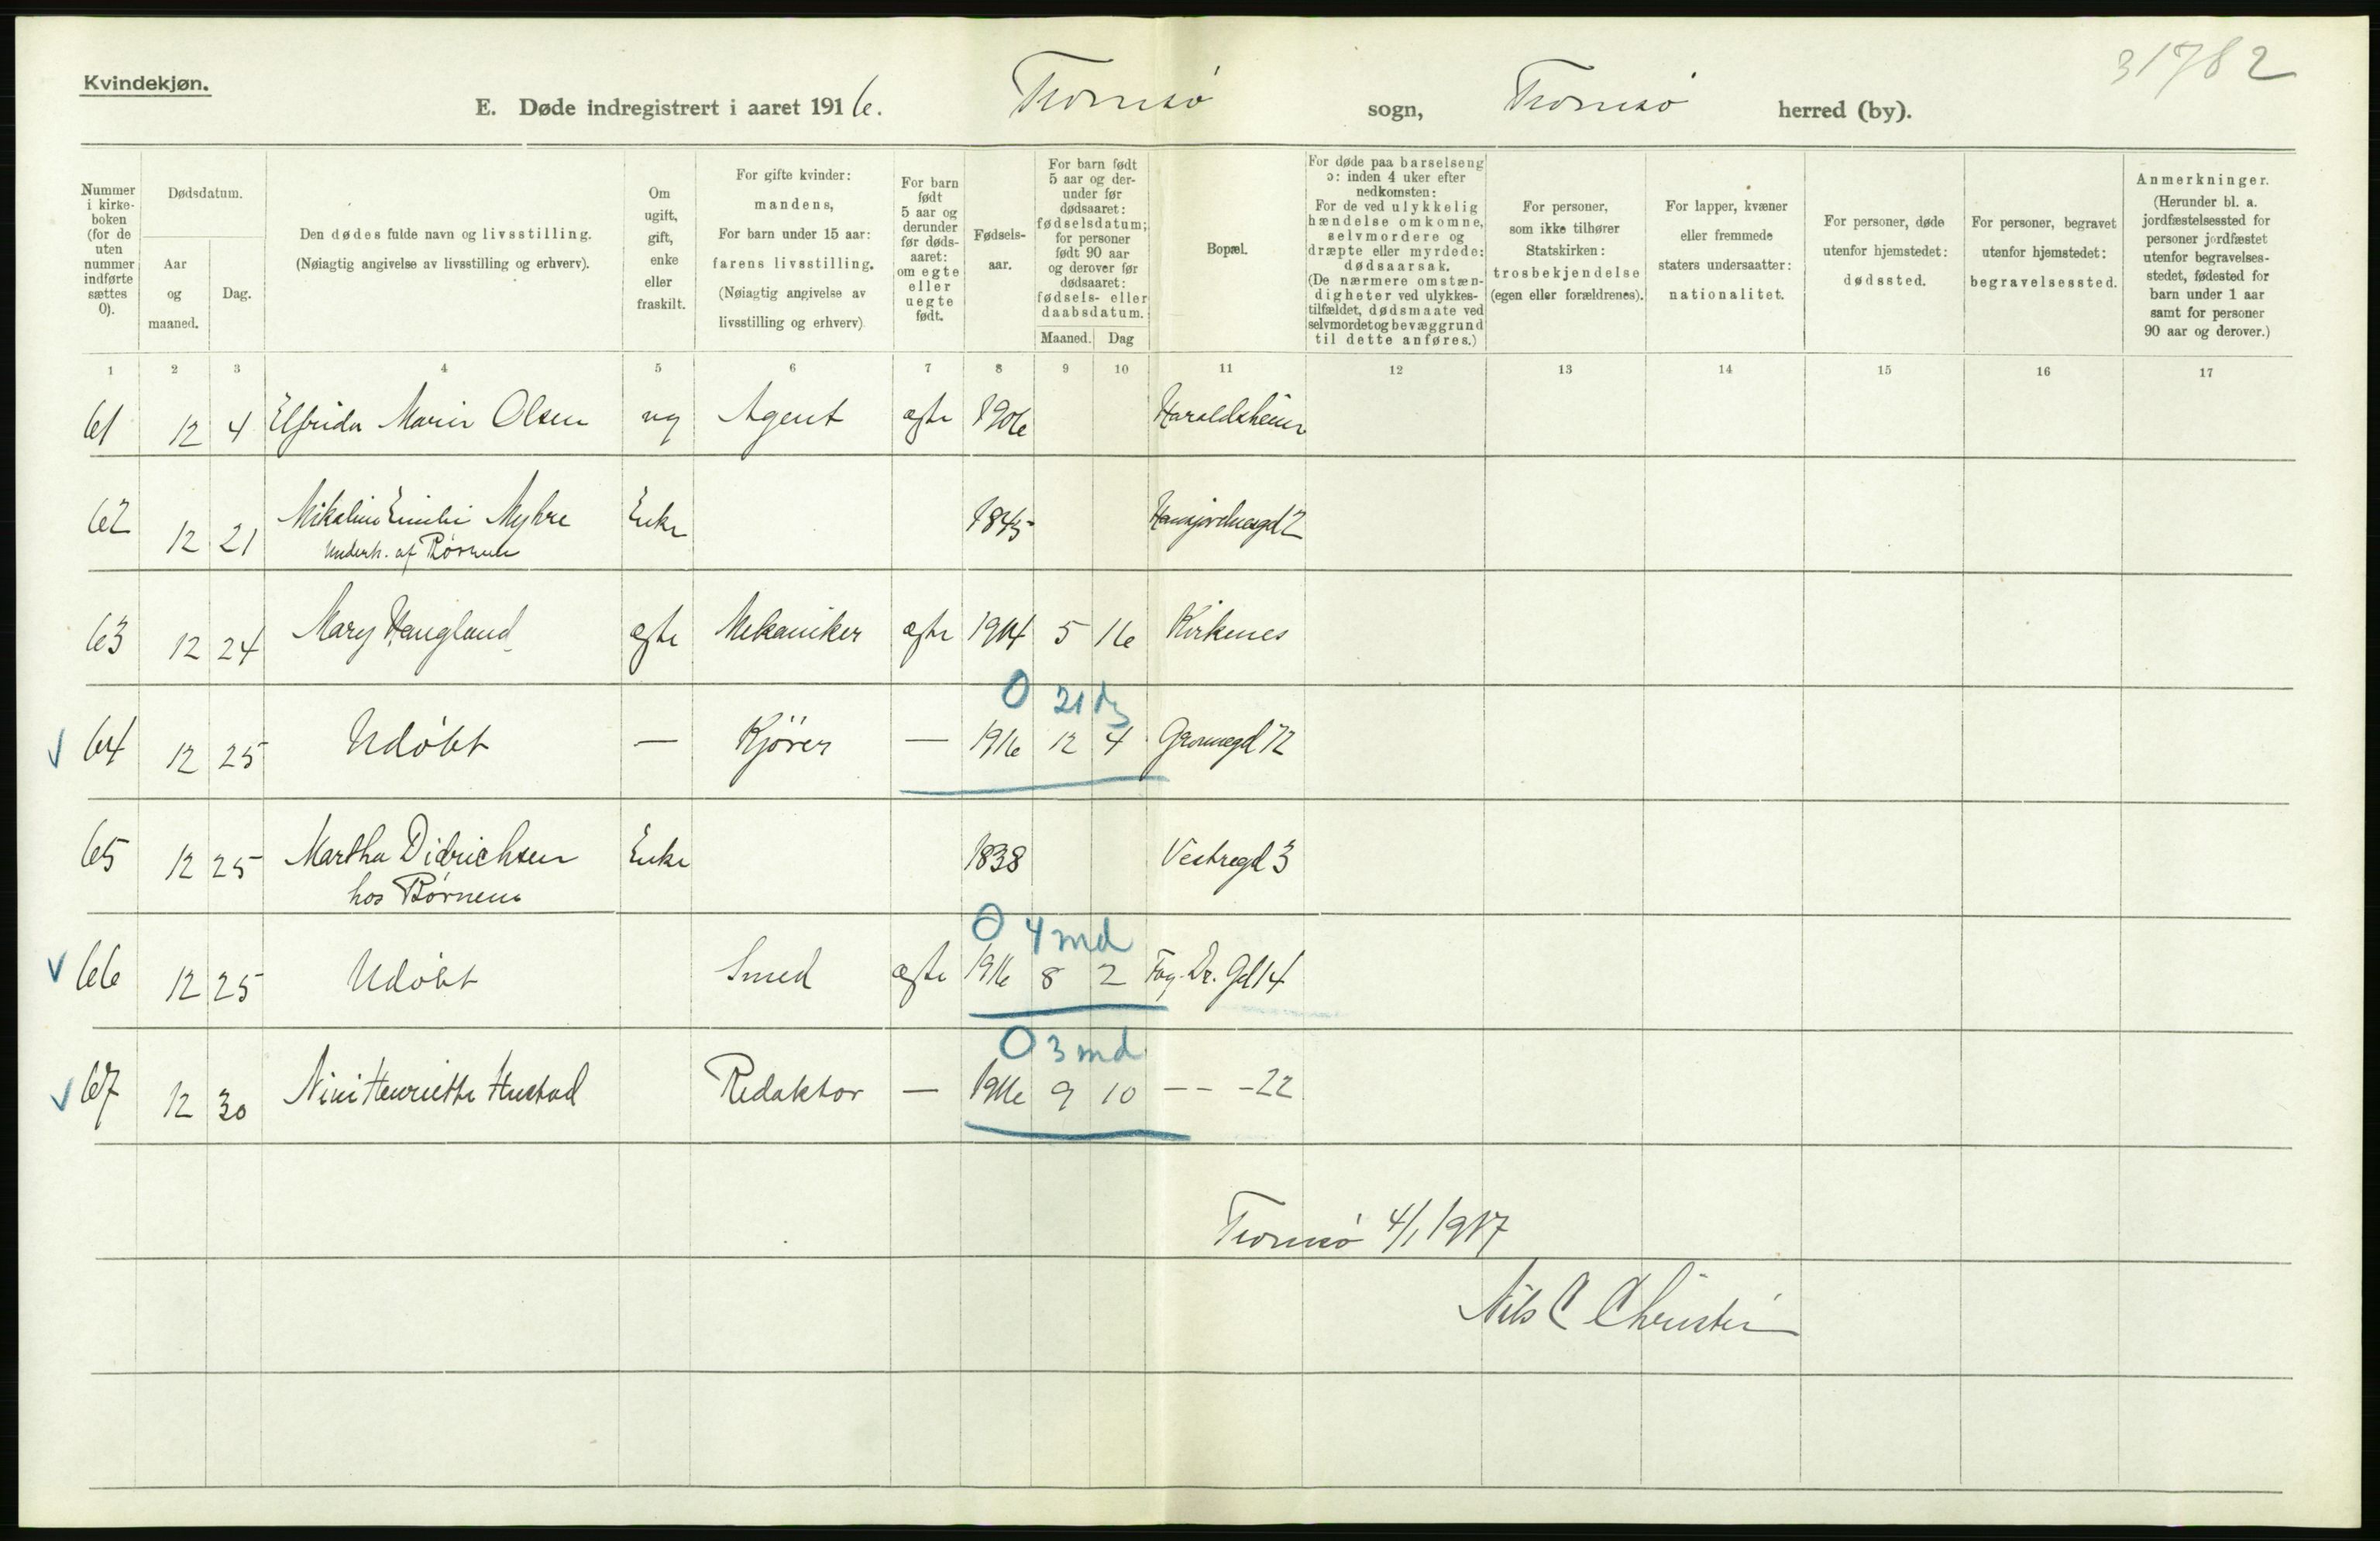 31782
Kvindekjøn.
E. Døde indregistrert i aaret 1916. Tromsø sogn, Tromsø herred (by).
Nummer i kirke-boken (for de uten nummer indførte sættes 0).
Dødsdatum.
Aar og maaned.
Dag.
Den dødes fulde navn og livsstilling.
(Nøiagtig angivelse av livsstilling og erhverv).
Om ugift, gift, enke eller fraskilt.
For gifte kvinder:
mandens,
For barn under 15 aar:
farens livsstilling.
(Nøiagtig angivelse av
livsstilling og erhverv)
For barn født 5 aar og derunder før døds-aaret: om egte eller uegte født.
Fødsels-aar.
For barn født
5 aar og der-
under før
dødsaaret:
fødselsdatum;
for personer
født 90 aar
og derover før
dødsaaret:
fødsels- eller
daabsdatum.
Maaned. Dag
Bopæl.
For døde paa barselseng
ɔ: inden 4 uker efter
nedkomsten:
For de ved ulykkelig
hændelse omkomne,
selvmordere og
dræpte eller myrdede:
dødsaarsak.
(De nærmere omstæn-
digheter ved ulykkes-
tilfældet, dødsmaate ved
selvmordet og bevæggrund
til dette anføres.)
For personer,
som ikke tilhører
Statskirken:
trosbekjendelse
(egen eller forældrenes).
For lapper, kvæner
eller fremmede
staters undersaatter:
nationalitet.
For personer, døde
utenfor hjemstedet:
dødssted.
For personer, begravet
utenfor hjemstedet:
begravelsessted.
Anmerkninger.
(Herunder bl. a.
jordfæstelsessted for
personer jordfæstet
utenfor begravelses-
stedet, fødested for
barn under 1 aar
samt for personer
90 aar og derover.)
1 2 3 4 5 6 7 8 9 10 11 12 13 14 15 16 17
61 12 4 Elfrida Marie Olsen ug Agent egte 1906 Haraldsheim
62 12 21 Nikoline Emilie Myhre Enke 1845
Underh. af Børnene
63 12 24 Mary Haugland egte Mekaniker egte 1914 5 16 Kirkenes
0 21 dg
64 12 25 Udøbt — Kjører — 1916 12 4 Grønnegd 72
65 12 25 Martha Didrichsen Enke 1838 Vestregd 3
hos Børnene
0 4 md
66 12 25 Udøbt Smed egte 1916 8 2 Fog. Dr. Gd 14
0 3 md
67 12 30 Nini Henriette Hustad Redaktør — 1916 9 10 — — -22
Tromsø 4/1 1917
Nils C Christie